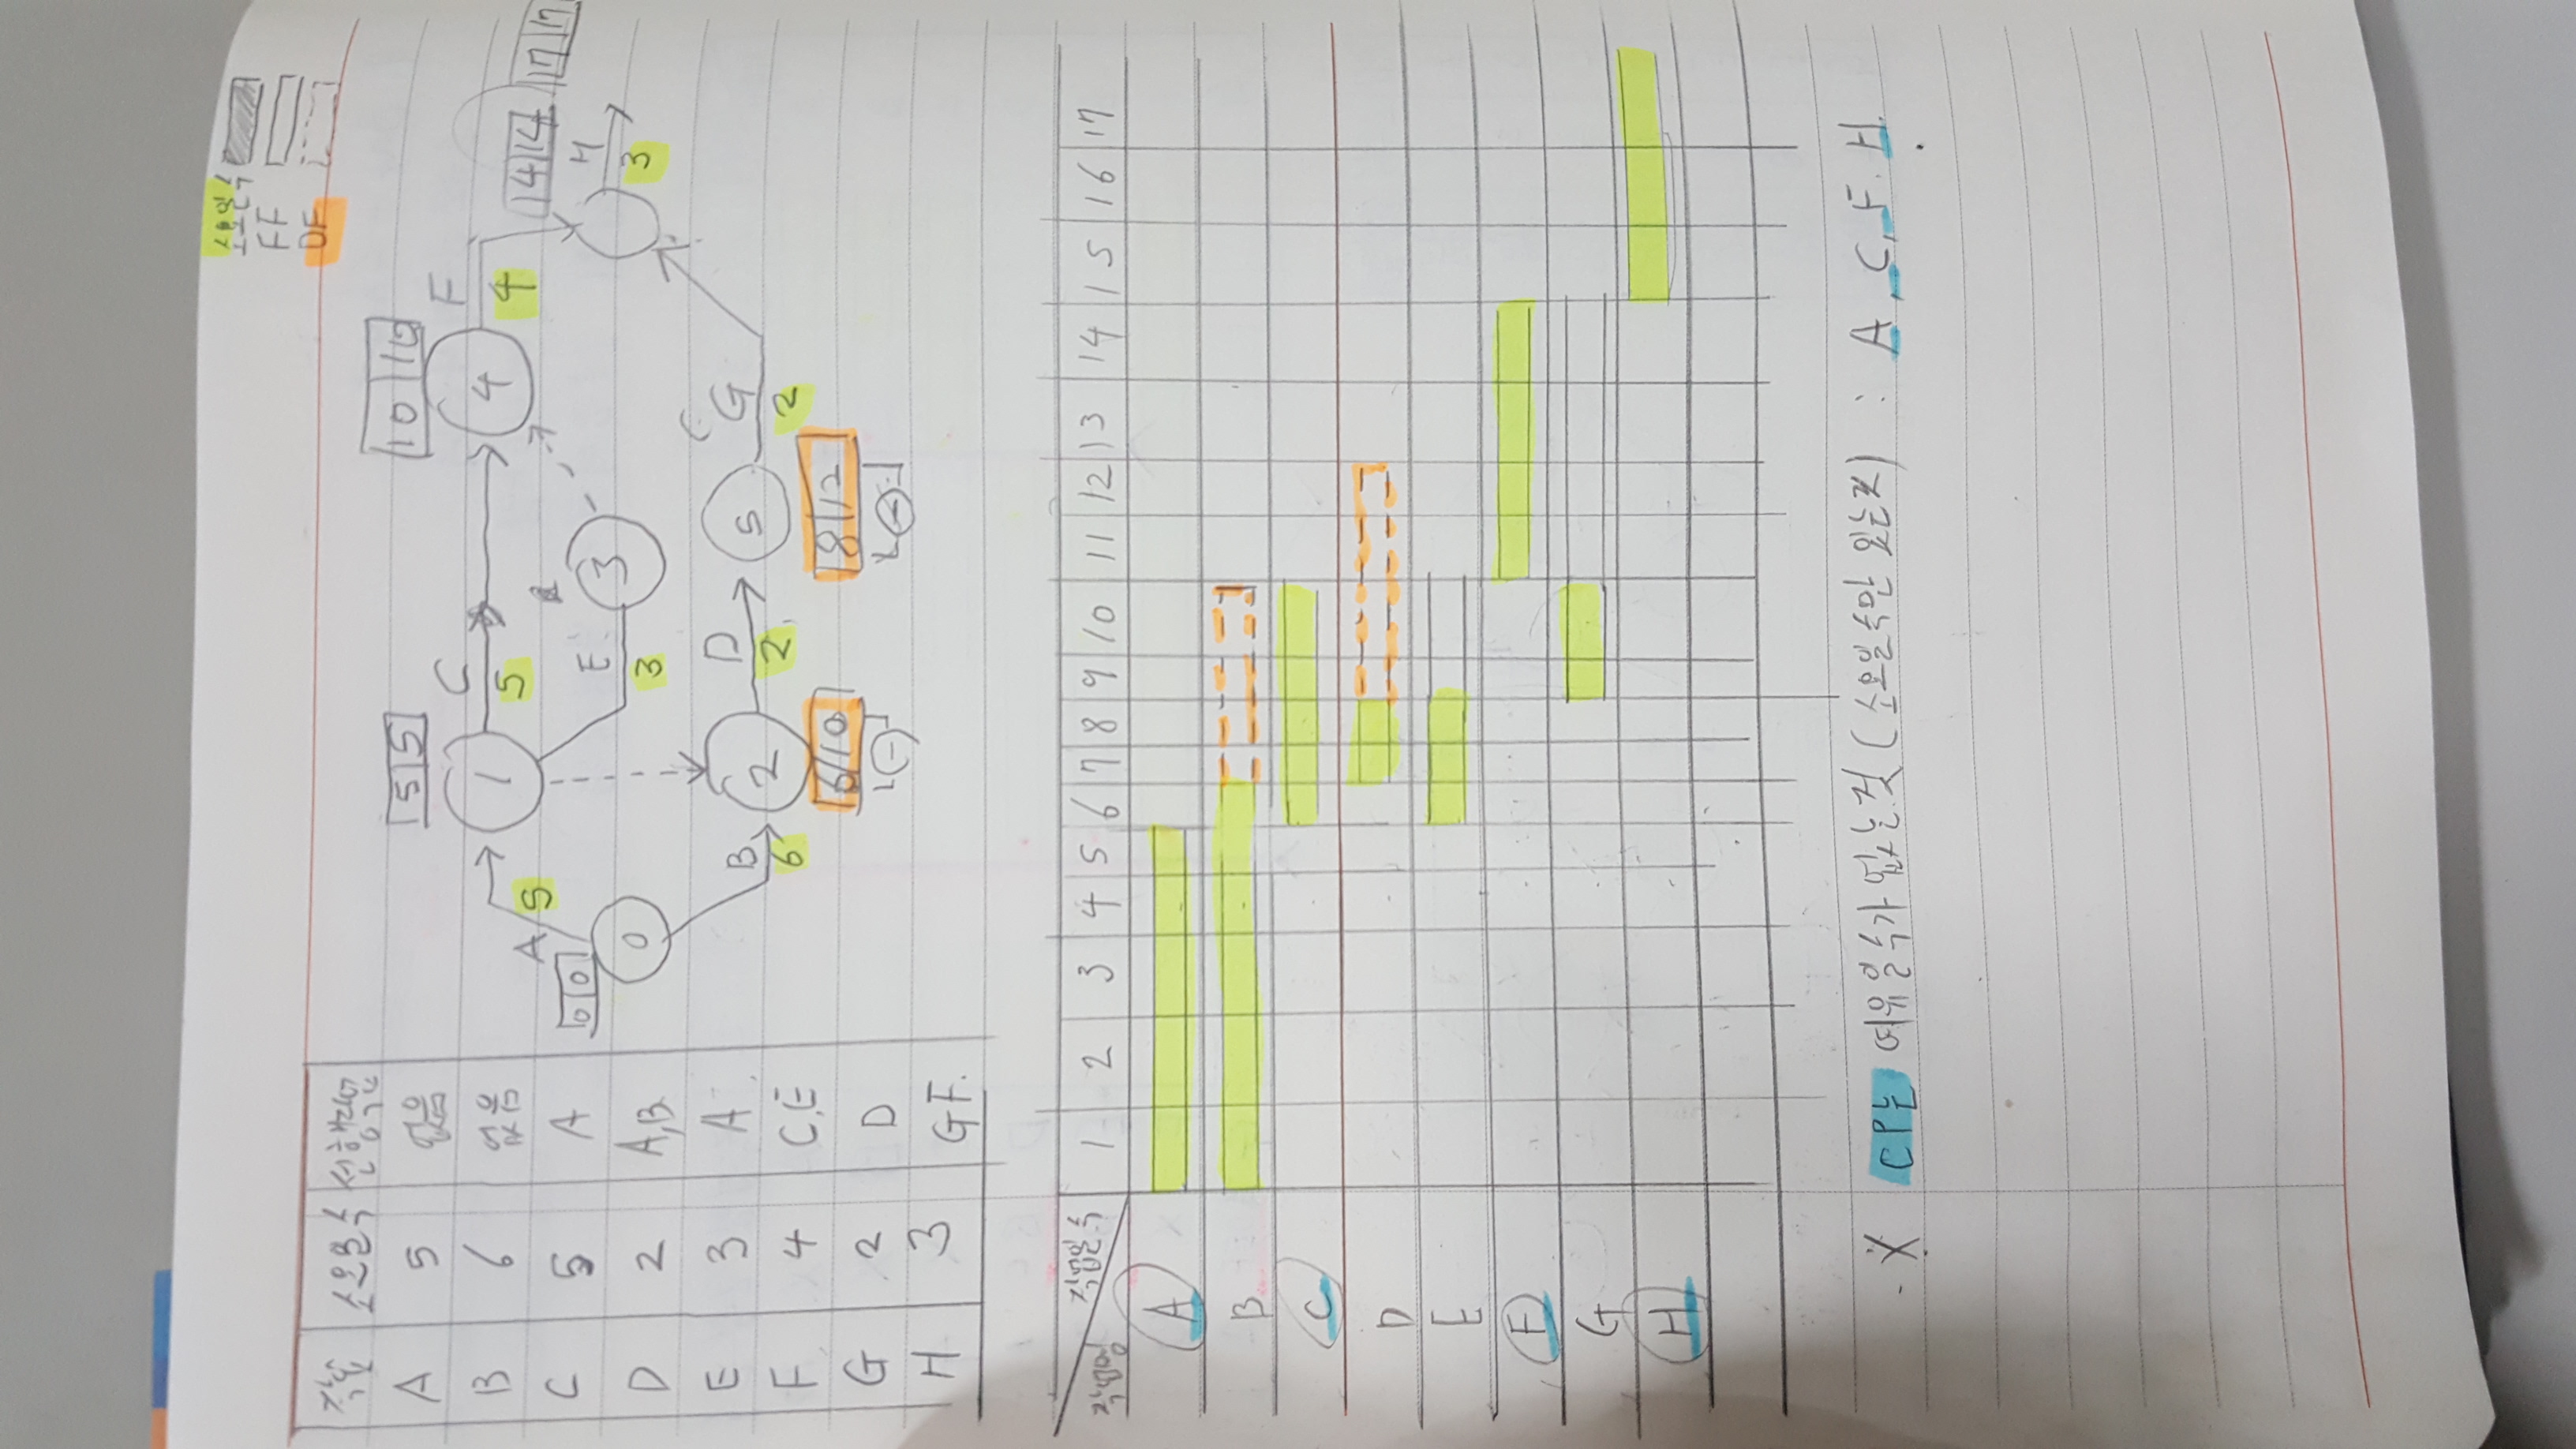 소요일수
FF
DF
작업 소요일수 선행작업
A 5 없음
B 6 없음
C 5 A
D 2 A,B
E 3 A
F 4 C,E
G 2 D
H 3 G F.
0 0
0
A 5
B 6
5 5
1
C 5
E 3
2
6 10
D 2
3
10 10
4
F 4
5
8 12
G 2
14 14
H 3
17 17
작업일수
작업명
1 2 3 4 5 6 7 8 9 10 11 12 13 14 15 16 17
A
B
C
D
E
F
G
H
※ CP는 여유일수가 없는 것 (소요일수만 있는 것) : A, C, F, H.